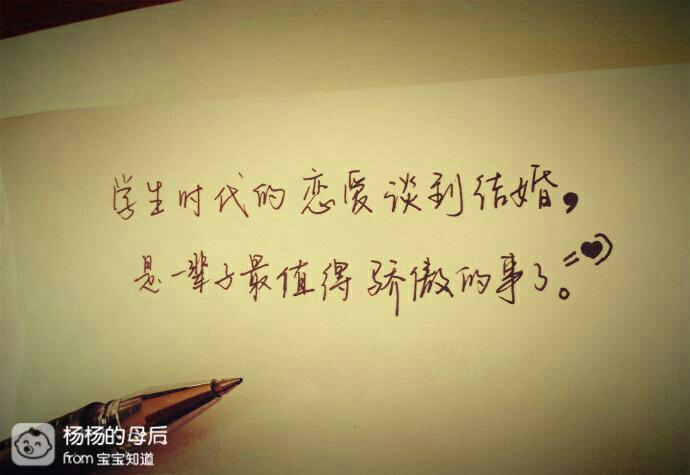 学生时代的恋爱谈到结婚，
是一辈子最值得骄傲的事了。
杨杨的母后
from 宝宝知道